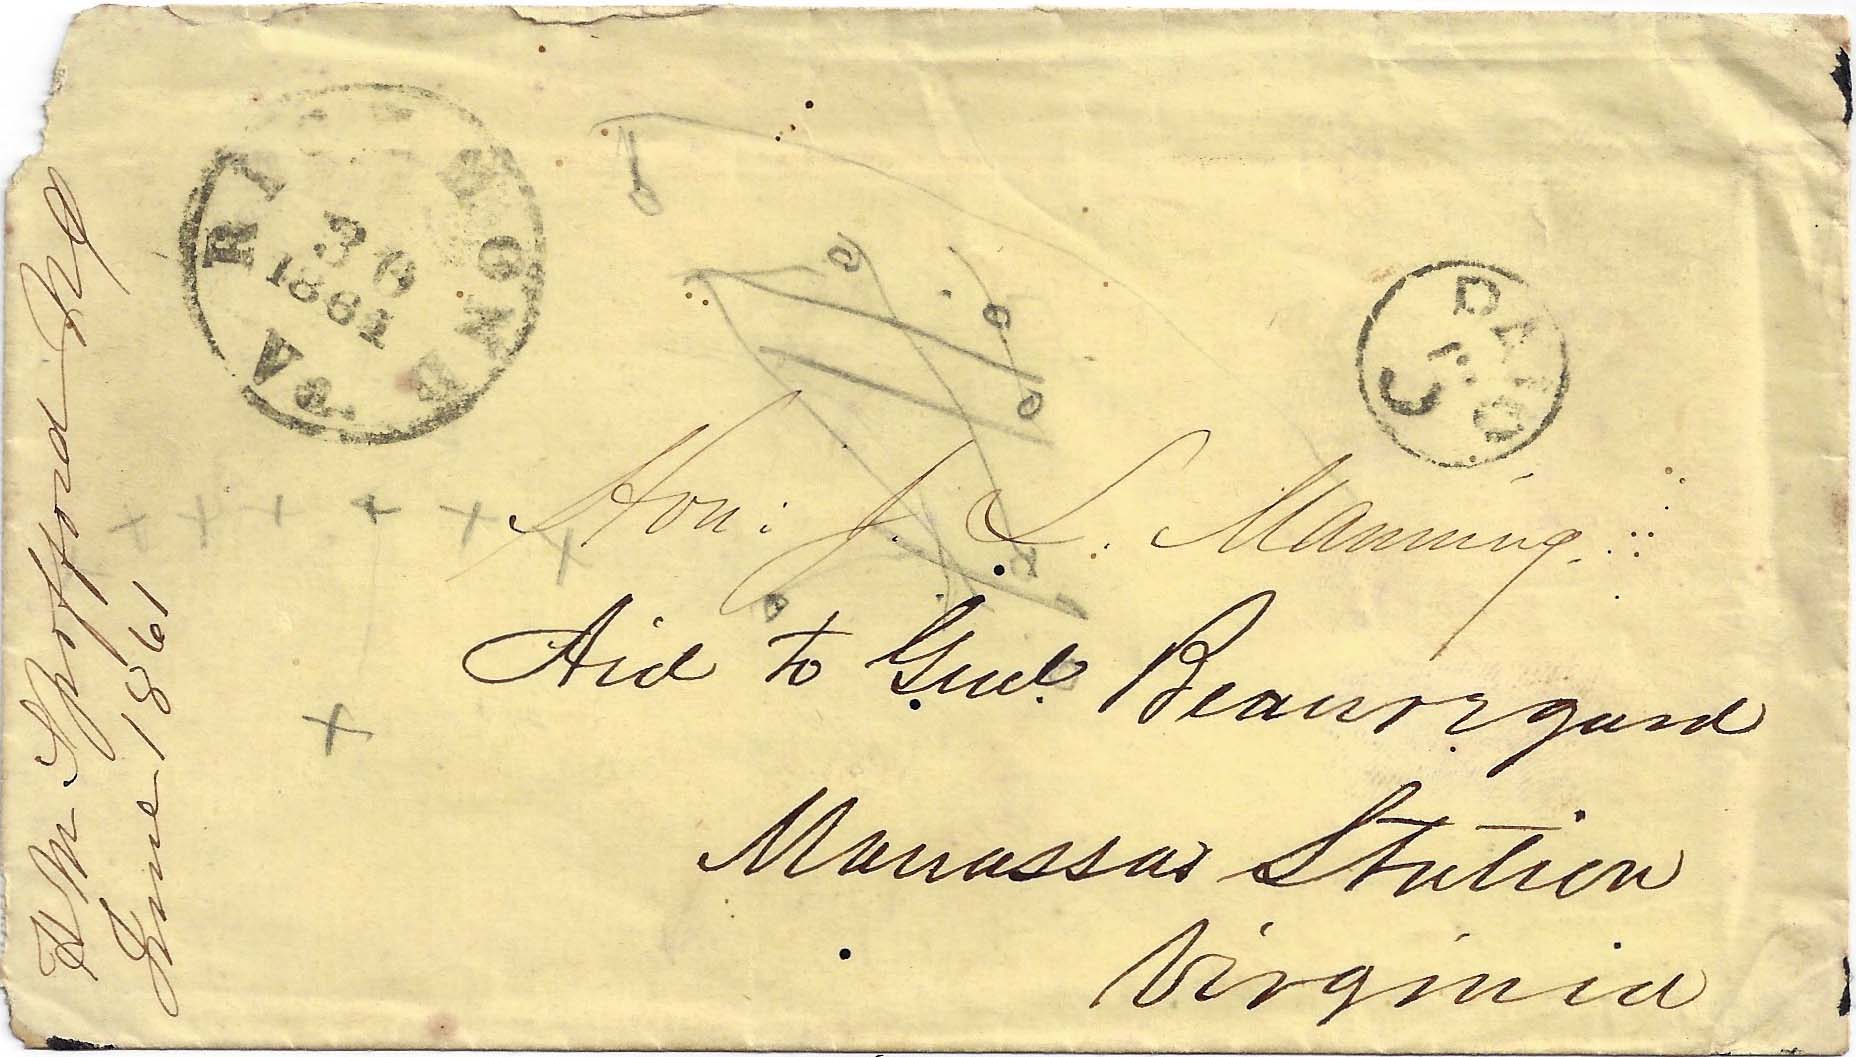 RICHMOND
30
1861
Va.
PAID
5
Hon: J. L. Manning.
Aid to Genl. Beauregard
Manassas Station
Virginia
Spofford
June 1861